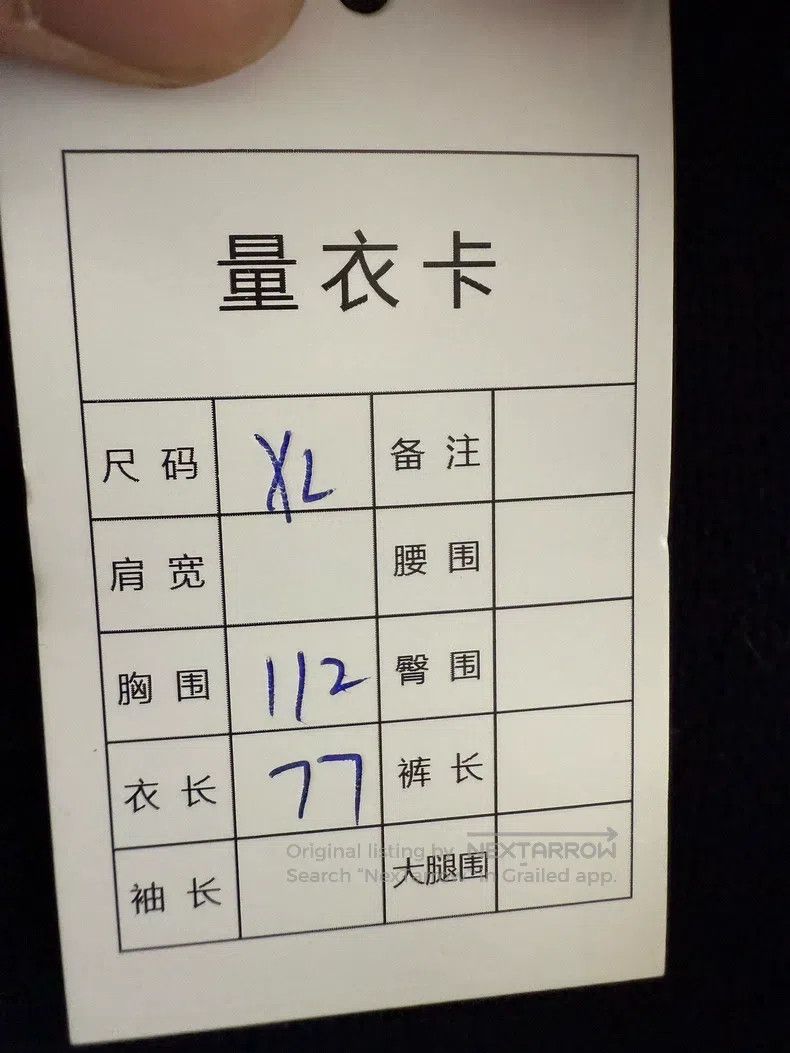 量衣卡
尺码 XL 备注
肩宽 腰围
胸围 112 臀围
衣长 77 裤长
袖长 大腿围
Original listing by NEXTARROW
Search "Nextarrow" in Grailed app.